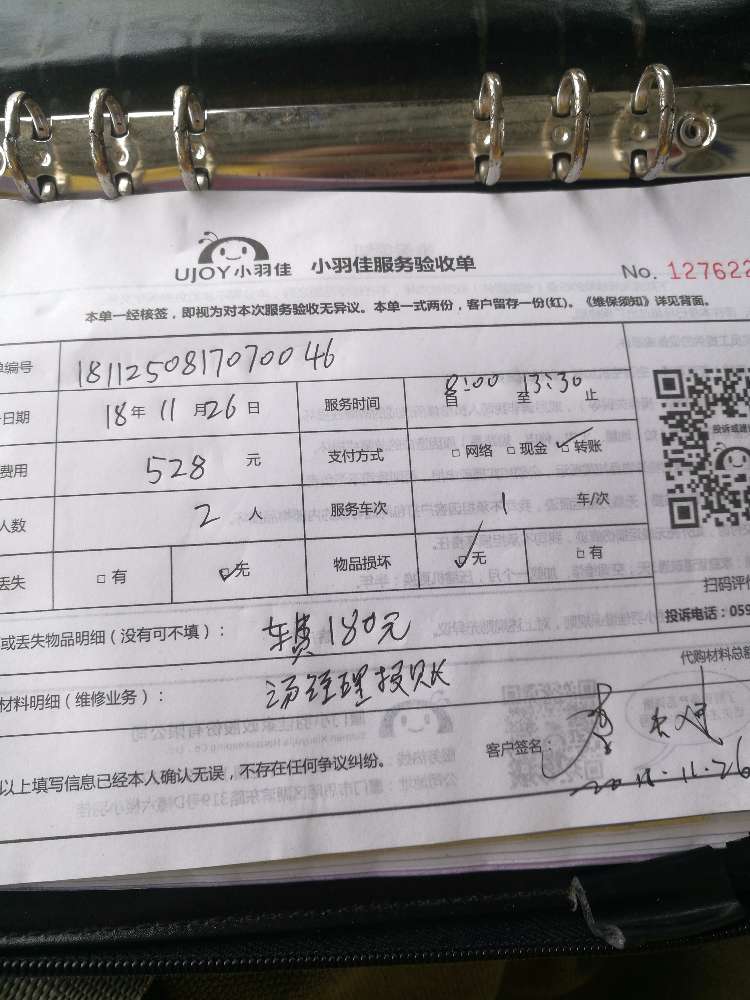 UJOY小羽佳 小羽佳服务验收单 No. 127622
本单一经核签，即视为对本次服务验收无异议。本单一式两份，客户留存一份(红)。《维保须知》详见背面。
单编号 18112508170700 46
日期 18年 11月26日 服务时间 8:00 自 至 13:30 止
费用 528 元 支付方式 □网络 □现金 □转账
人数 2 人 服务车次 1 车/次
丢失 □有 □无 物品损坏 □无 □有
投诉或建
扫码评
投诉电话：059
或丢失物品明细（没有可不填）： 车费180元
代购材料总额
材料明细（维修业务）： 汤经理授账
客户签名：
以上填写信息已经本人确认无误，不存在任何争议纠纷。
2018.11.26